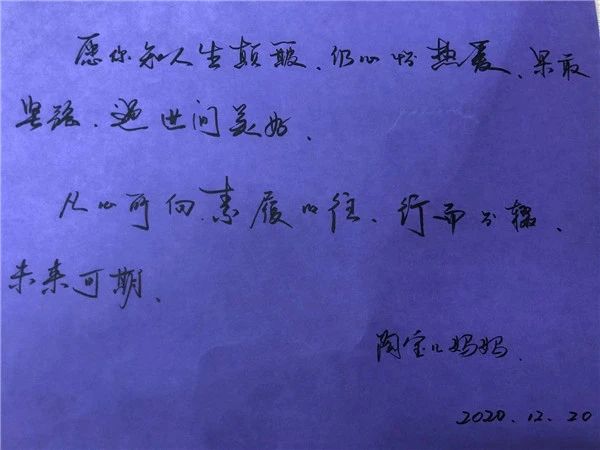 愿你知人生颠簸、仍心怀热爱、果敢
坚强、遇世间美好、
从心所向、素履以往、行而不辍、
未来可期、
陶宝儿妈妈、
2020.12.20